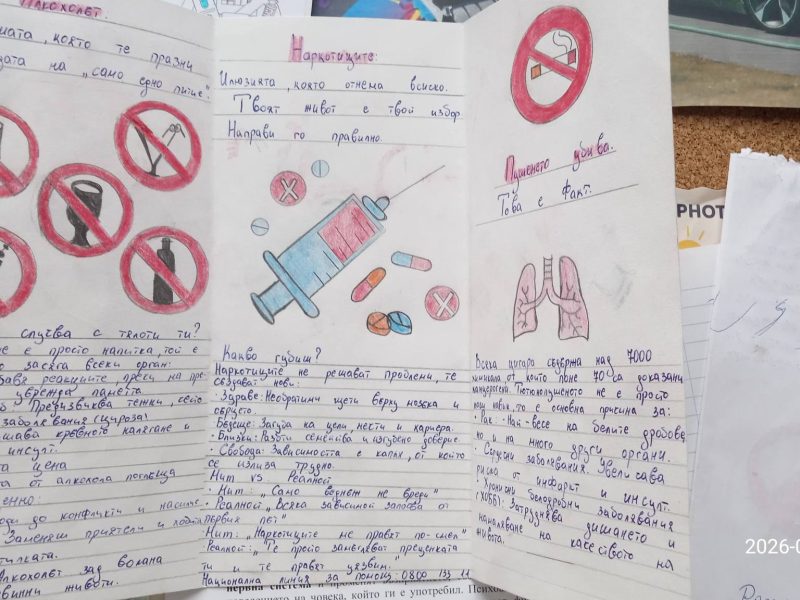 Алкохолът:
мата, която те празни
зата на „само едно питие".
случва с тялото ти?
не е просто напитка, той е
засяга всеки орган:
реакциите, пречи на пре-
уврежда паметта
Предизвиква тежки,
заболявания (цироза)
кръвното налягане и
инсулт.
та цена
та от алкохола поглъща
енно:
води до конфликти и насилие.
Заменяш приятели и
тилката.
Алкохолът зад волана
животи.
Наркотиците:
Илюзията, която отнема всиско.
Твоят живот е твой избор.
Направи го правилно.
Какво губиш?
Наркотиците не решават проблеми, те
създават нови:
· Здраве: Необратими щети върху мозъка и
сърцето.
Бъдеще: Загуба на цели, мечти и кариера.
· Близки: Разбити семейства и изгубено доверие.
· Свобода: Зависимостта е капан, от който
се излиза трудно.
Мит VS Реалност
· Мит: „Само веднъж не вреди"
· Реалност „Всяка зависимост започва от
първия път"
· Мит: „Наркотиците ме правят по-смел"
Реалност: „Те просто замъгляват преценката
ти и те правят уязвим."
Национална линия за помощ: 0800 133 11
Пушенето убива.
Това е факт.
Всяка цигара съдържа над 7000
химикала, от които поне 70 са доказани
канцерогени. Тютюнопушенето не е просто
лош навик, то е основна причина за:
· Рак: Най-вече на белите дробове,
но и на много други органи.
· Сърдечни заболявания: Увеличава
риска от инфаркт и инсулт.
· Хронични белодробни заболявания
(ХОББ): Затруднява дишането и
намаляване на качеството на
живота.
PHOT
2026-0
нервна система и
на човека, който ги е употребил.